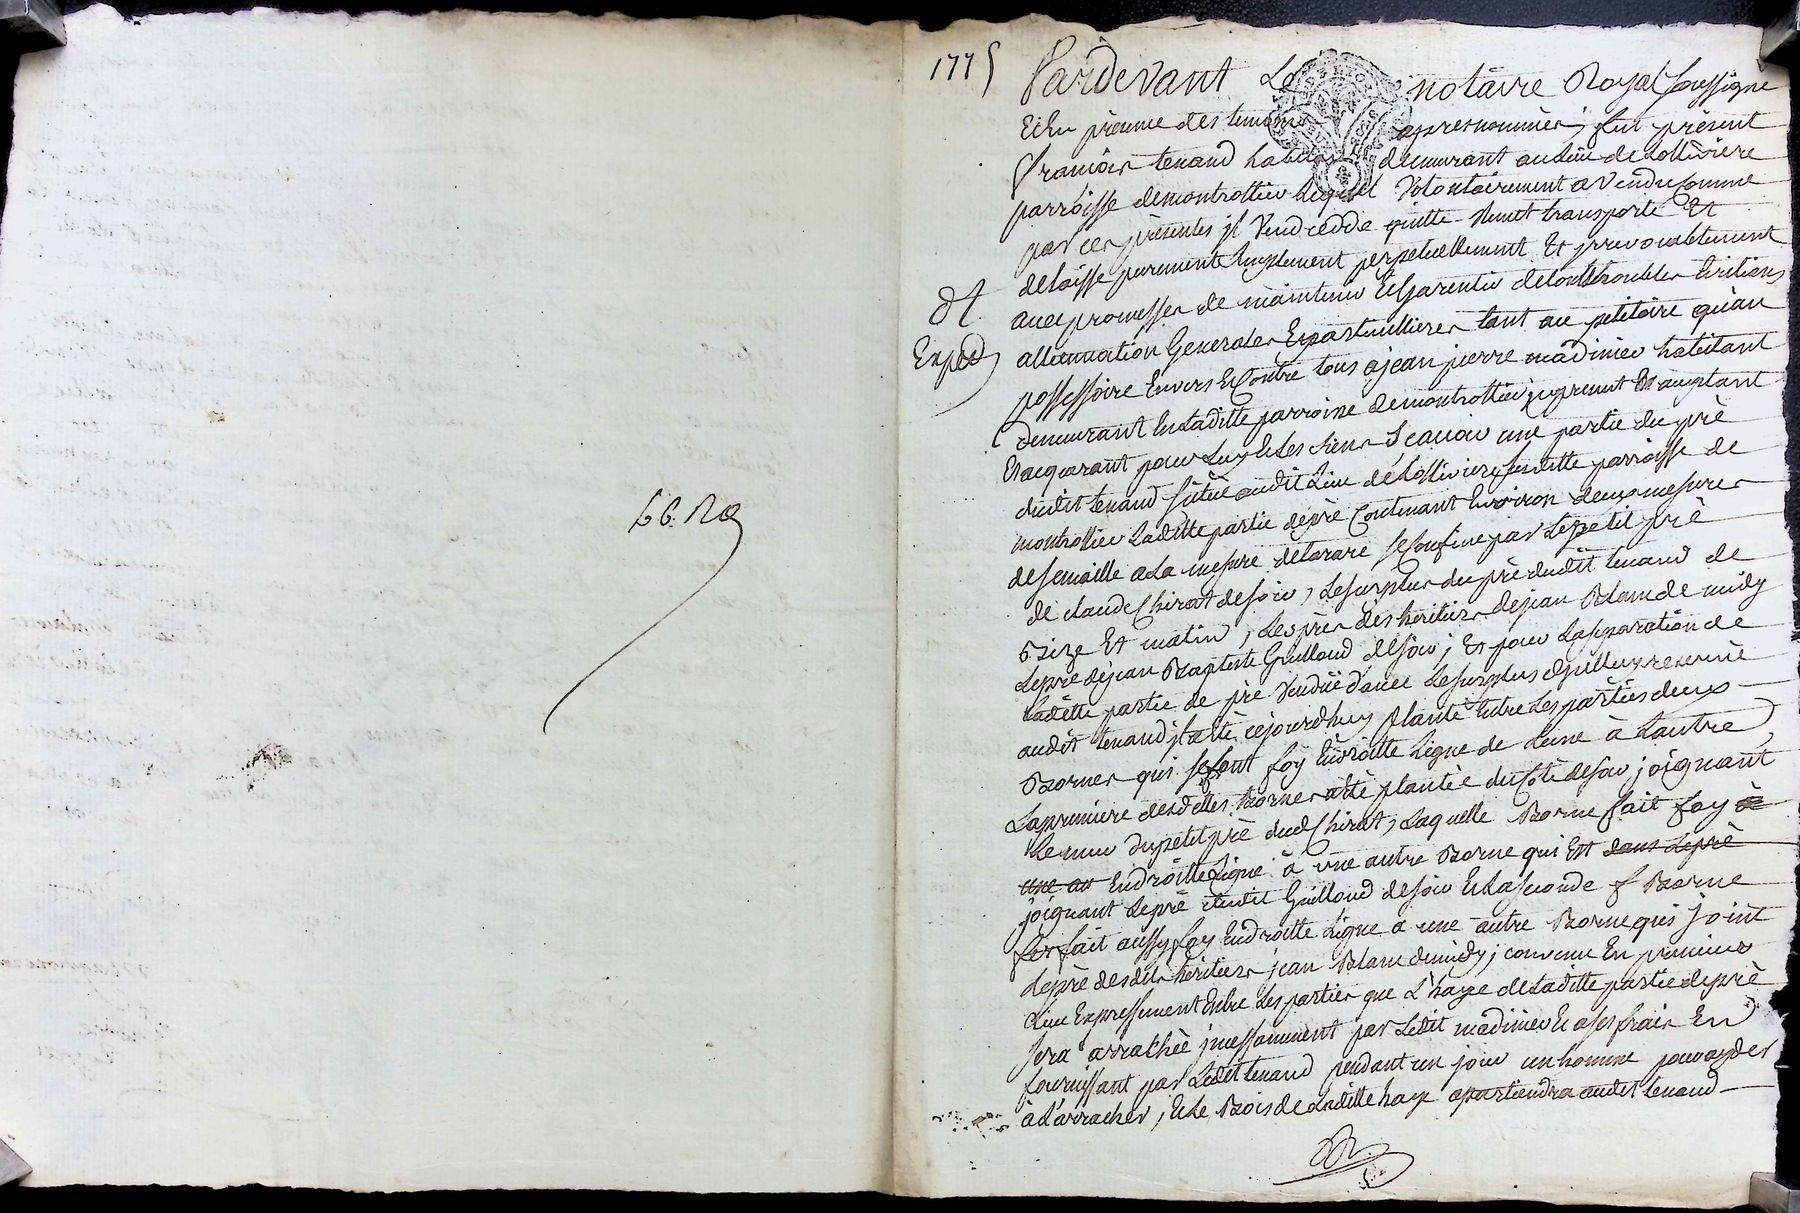 1775
Pardevant Le notaire Royal Soussigne
Et En presence des temoins apres nommés, fut present
francois tenaud habitant demeurant au lieu de Lolliviere
parroisse demontrottier Lequel Volontairement a Vendu Comme
par ces presentes jl Vend cedde quitte Remet transporte Et
delaisse purement simplement perpetuellement Et jrrevocablement
avec promesse de maintenir Et garentir de tout troubles Evitions
allienation Generales Et particullieres tant au petitoire qu'au
possessoire Envers Et Contre tous a jean pierre madinier habitant
demeurant En Laditte parroisse demontrottier jcy present Et acceptant
Et acquerant pour Luy Et Les siens Sçavoir une partie du pré
dudit tenaud situé audit Lieu de Lolliviere susditte parroisse de
montrottier Laditte partie de pré Contenant Environ deux mesures
de semaille a La mesure detarare se Confine par Le petit pré
de claude Chirat de soir, Le surplus du pré dudit tenaud de
Bize Et matin, Les prés des heritiers de jean Blanc de midy
Le pré de jean Baptiste Guilloud de soir; Et pour La separation de
Laditte partie de pré Vendüe d'avec Le surplus
audit tenaud jl a Eté cejourdhuy planté Entre Les parties deux
Bornes qui se font foy En droitte Ligne de L'une à Lautre
La premiere desdittes Bornes a Eté plantée du Coté de soir joignant
Le mur du petit pré dud Chirat, Laquelle Borne fait foy à
une au En droitte Ligne à une autre Borne qui Est dans Le pré
joignant Le pré dudit Guilloud de soir Et La seconde Borne
fait aussy foy En droitte Ligne a une autre Borne qui joint
Le pré desdits heritiers jean Blanc de midy; convenu En premier
Lieu Expressement Entre Les parties que L'haye de Laditte partie de pré
sera arrachée jncessamment par Ledit madinier Et a ses frais En
fournissant par Ledit tenaud pendant un jour un homme pour ayder
à L'arracher, Et Le Bois de Laditte haye apartiendra audit tenaud
Exped